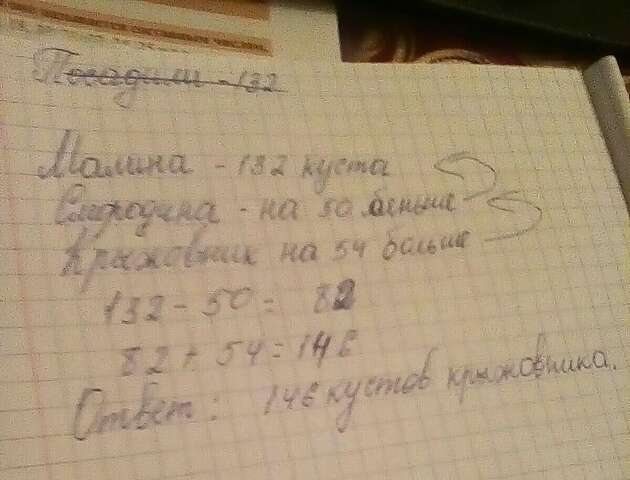 Посадили - 132
Малина - 132 куста
Смородина - на 50 меньше
Крыжовник на 54 больше
132 - 50 = 82
82 + 54 = 146
Ответ: 146 кустов крыжовника.